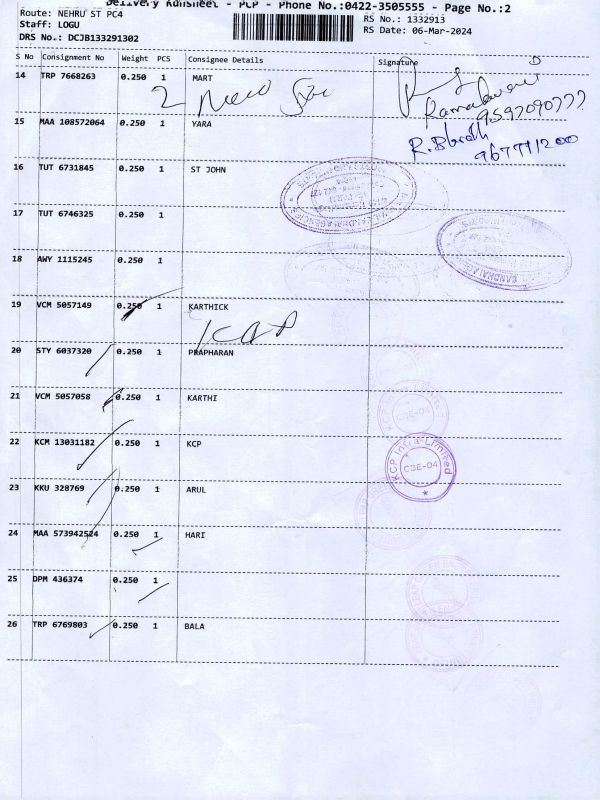 Delivery RunSheet - PCP - Phone No.:0422-3505555 - Page No.:2
Route: NEHRU ST PC4
RS No.: 1332913
Staff: LOGU
RS Date: 06-Mar-2024
DRS No.: DCJB133291302
S No Consignment No Weight PCS Consignee Details Signature
14 TRP 7668263 0.250 1 MART
2
9597090777
15 MAA 108572064 0.250 1 YARA
R.Bharath
9677711200
16 TUT 6731845 0.250 1 ST JOHN
17 TUT 6746325 0.250 1
18 AWY 1115245 0.250 1
19 VCM 5057149 0.250 1 KARTHICK
20 STY 6037320 0.250 1 PRAPHARAN
21 VCM 5057058 0.250 1 KARTHI
CBE-04
22 KCM 13031182 0.250 1 KCP
KCP Infra Limited
CBE-04
23 KKU 328769 0.250 1 ARUL
24 MAA 573942524 0.250 1 HARI
25 DPM 436374 0.250 1
26 TRP 6769803 0.250 1 BALA